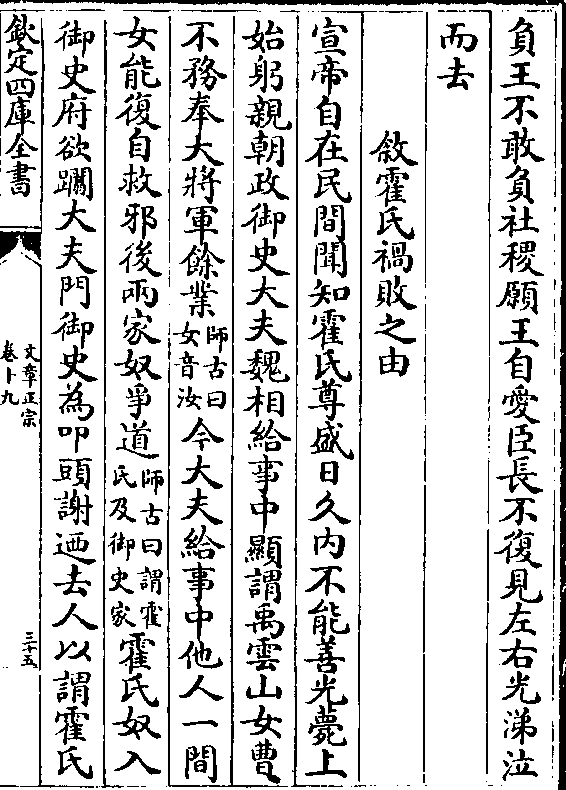 負王不敢負社稷願王自愛臣長不復見左右光涕泣
而去
敘霍氏禍敗之由
宣帝自在民間聞知霍氏尊盛日久内不能善光薨上
始躬親朝政御史大夫魏相給事中顯謂禹雲山女曹
不務奉大將軍餘業師古曰女音汝今大夫給事中他人一間
女能復自救邪後兩家奴爭道師古曰謂霍氏及御史家霍氏奴入
御史府欲躢大夫門御史為叩頭謝迺去人以謂霍氏
欽定四庫全書
文章正宗
卷十九
三十五